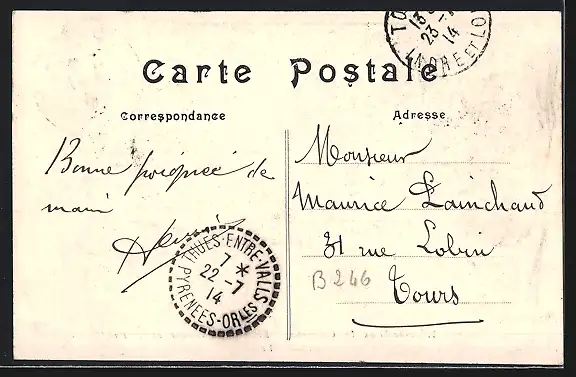 Carte Postale
Correspondance
Bonne poignée de
main
Adresse
Monsieur
Maurice Lainchaud
31 rue Lobin
Tours
B 246
THUES-ENTRE-VALLS
7 *
22 -7
14
PYRENEES-ORLES
TO
13
23 -7
14
INDRE ET LO